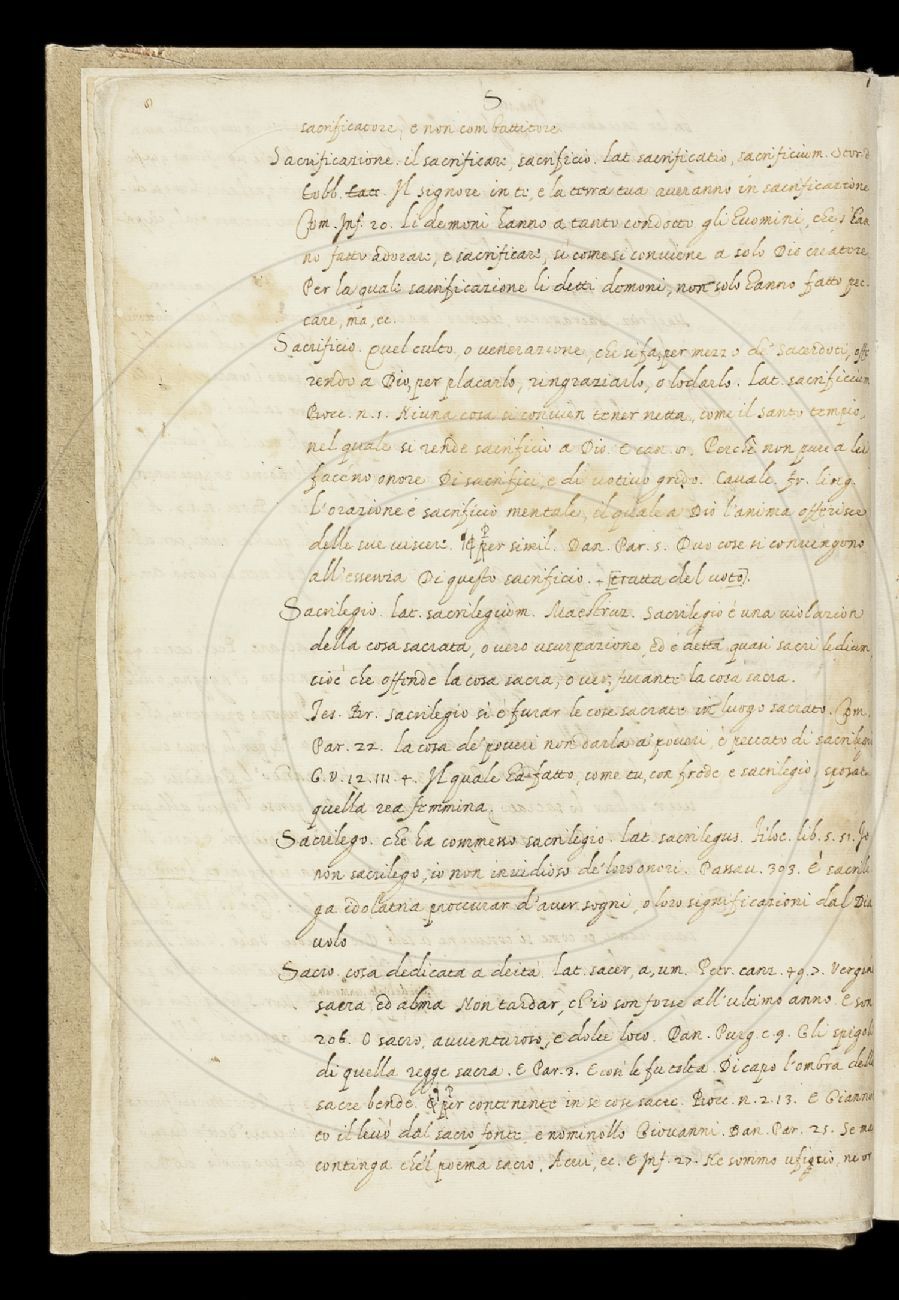 S
sacrificatore, e non combattitore.
Sacrificazione. il sacrificare, sacrificio. Lat. sacrificatio, sacrificium. Stor.
Tobb. Il signore in te, e la terra tua averanno in sacrificazione
Com. Inf. 20. Li demoni hanno a tanto condotto gli huomini, che s'han
no fatto adorare, e sacrificare, sì come si conviene a solo Dio creatore
Per la quale sacrificazione li detti demoni, non solo hanno fatto pec-
care, ma, ec.
Sacrificio. Quel culto, o venerazione, che si fa, per mezzo de' Sacerdoti, offe
rendo a Dio, per placarlo, ringraziarlo, o lodarlo. Lat. sacrificium
Bocc. n. 1. Niuna cosa si convien tener netta, come il santo tempio,
nel quale si rende sacrificio a Dio. E can. 8. Perchè non pure a lei
facéno onore Di sacrifici, e di votivo grido. Cavalc. fr. ling.
L'orazione è sacrificio mentale, il quale a Dio l'anima offerisce
delle sue viscere. per simil. Dan. Par. 5. Duo cose si convengono
all'essenza Di questo sacrificio. [tratta del voto].
Sacrilegio. Lat. sacrilegium. Maestruz. Sacrilegio é una violazion
della cosa sacrata, o vero usurpazione, ed é detta quasi sacriledium,
cioè che offende la cosa sacra, o ver, furante la cosa sacra.
Tes. Br. Sacrilegio sì é furar le cose sacrate in luogo sacrato. Com.
Par. 22. La cosa de' poveri non darla a' poveri, è peccato di sacrilegio
G. V. 12. 111. 4. Il quale ha fatto, come tu, con frode, e sacrilegio, sposat
quella rea femmina.
Sacrilego. che ha commesso sacrilegio. Lat. sacrilegus. Filoc. lib. 5. 51. Io
non sacrilego, io non invidioso de' loro onori. Passav. 303. E' sacrile
ga idolatria proccurar d'aver sogni, o loro significazioni dal Dia
volo
Sacro. cosa dedicata a deità. Lat. sacer, a, um. Petr. canz. 49. 7. Vergine
sacra, ed alma Non tardar, ch'io son forse all'ultimo anno. E son
206. O sacro, avventuroso, e dolce loco. Dan. Purg. c. 9. Gli spigoli
di quella regge sacra. E Par. 3. E così le fu tolta Di capo l'ombra delle
sacre bende. per contenente in sé cose sacre. Bocc. n. 2. 13. E Giannot
to il levò dal sacro fonte, e nominollo Giovanni. Dan. Par. 25. Se mai
continga che'l poema sacro, Acui, ec. E Inf. 27. Ne sommo uficio, ne or